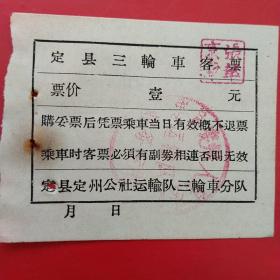 定县三輪車客票
票价 壹 元
購妥票后凭票乘车当日有效概不退票
乘車时客票必須有副劵相連否則无效
定县定州公社运輸队三輪車分队
月 日